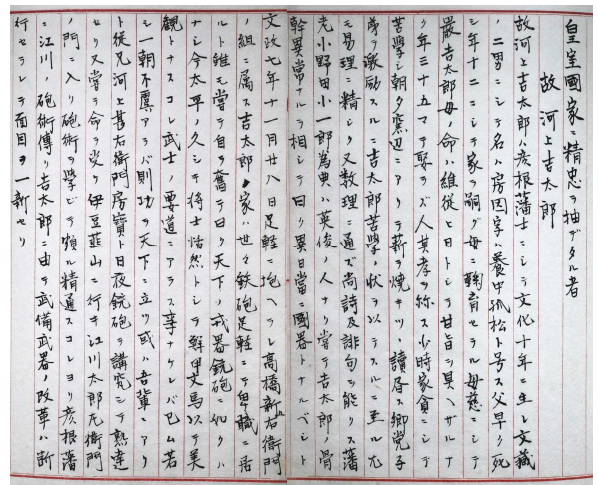 皇室國家ニ精忠ヲ抽デタル者
故 河上吉太郎
故河上吉太郎ハ彦根藩士ニシテ文化十年ニ生レ文藏
ノ二男ニシテ名ハ房因字ハ養中孤松ト号ス父早ク死
シ年十二ニシテ家ヲ嗣グ母ニ鞠育セラル母慈ニシテ
嚴吉太郎母ノ命ハ維従ヒ日トシテ甘旨ヲ具ヘザルナ
ク年三十五マテ娶ラズ人其孝ヲ称ス少時家貪ニシテ
苦學シ朝夕竃辺ニアリテ薪ヲ焼キツヽ讀眉ス郷党子
尊ヲ激励スルニ吉太郎苦學ノ状ヲ以テスルニ至ル尤
モ易理ニ精シク又数理ニ通ズ尚詩及誹句ヲ能クス藩
老小野田小一郎為典ハ英俊ノ人ナリ嘗テ吉太郎ノ骨
幹異常ナルヲ相シテ曰ク異日當ニ國器トナルベシト
文政七年十一月廿八日足軽ニ抱ヘラレ高橋新右衛門
ノ組ニ属ス吉太郎ノ家ハ世々鉄砲足軽ニテ卑職ニ居
ルト雖モ嘗テ自ラ奮テ曰ク天下ノ戒器銃砲ニ如クハ
ナシ今太平ノ久シテ将士恬然トシテ鮮甲文馬以テ美
觀トナスコレ武士ノ要道ニアラス幸ナケレバ已ム若
シ一朝不虞アラバ則功ヲ天下ニ立ツ或ハ吾輩ニアリ
ト従兄河上甚右衛門房寶ト日夜銃砲ヲ講究シテ熟達
セリ又嘗テ命ヲ受ケ伊豆韮山ニ行キ江川太郎左衛門
ノ門ニ入リ砲術ヲ學ビテ頗ル精通スコレヨリ彦根藩
ニ江川ノ砲術傳リ吉太郎ニ由テ武備武器ノ改革ハ断
行セラレテ面目ヲ一新セリ